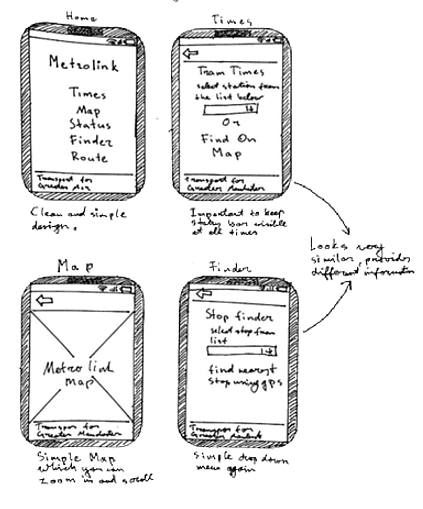 Home
Metrolink
Times
Map
Status
Finder
Route
Transport for
Greater Man
Clean and simple
design.
Times
Tram Times
select station from
the list below
Or
Find On
Map
Transport for
Greater Manchester
Important to keep
status bar visible
at all times
Looks very
similar, provides
different information
Map
Metrolink
Map
Transport for
Greater Manchester
Simple Map
which you can
zoom in and scroll
Finder
Stop finder
select stop from
list
find nearest
stop using gps
Transport for
Greater Manchester
Simple drop down
menu again